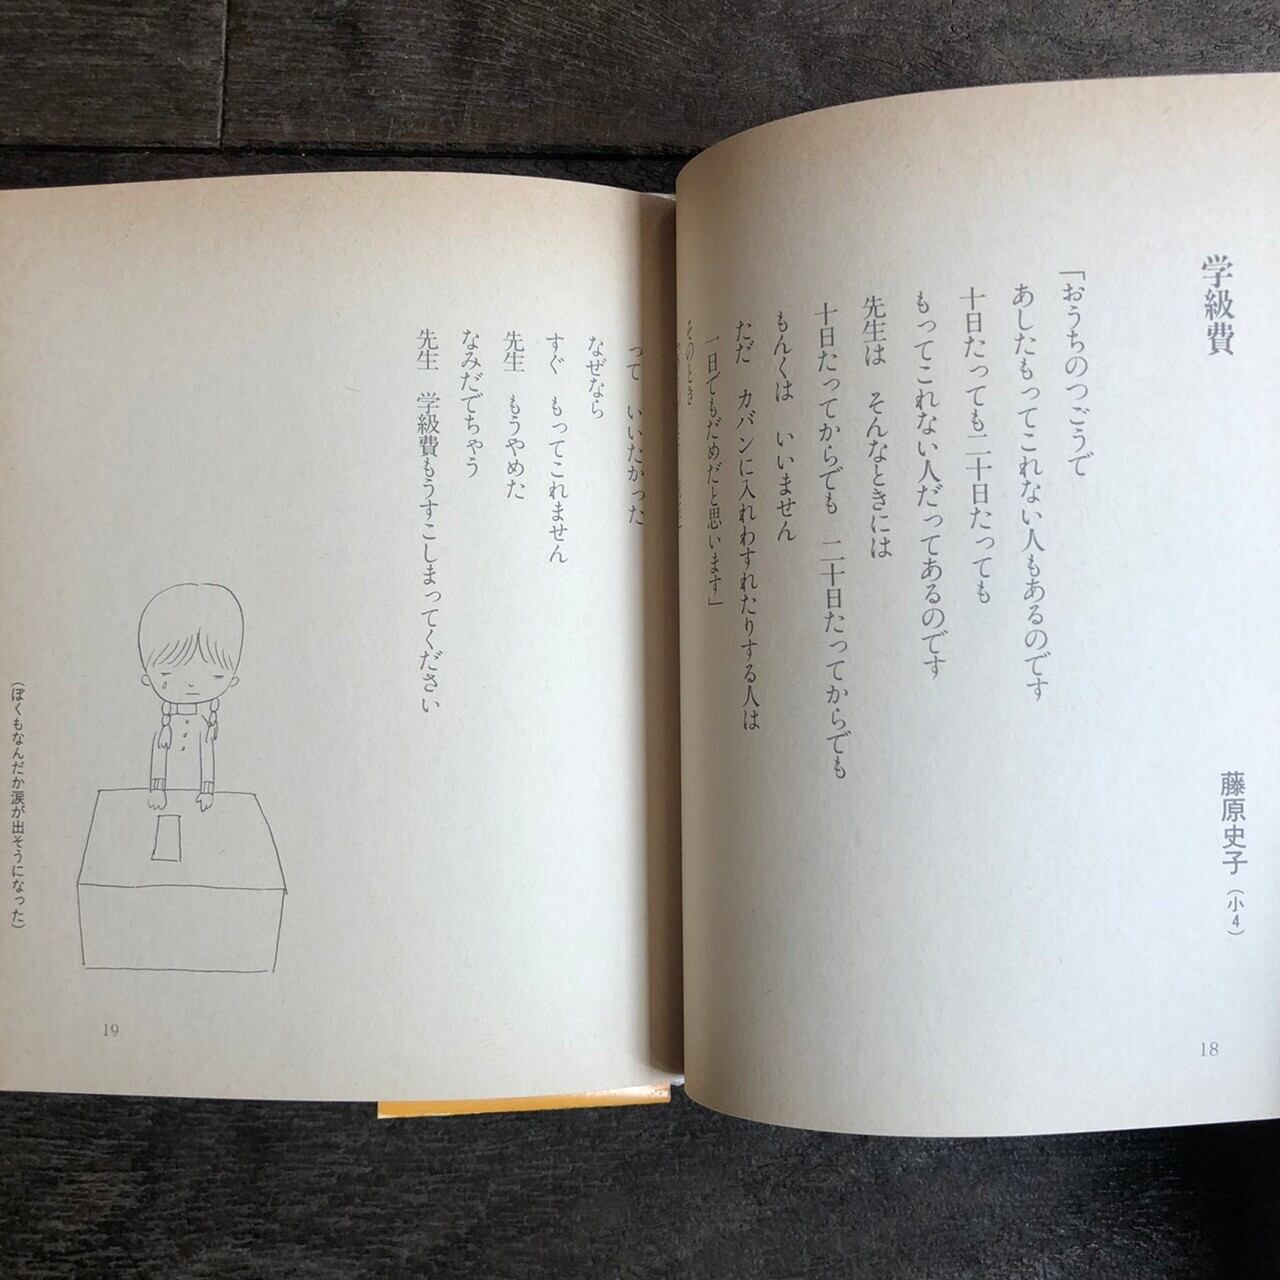 学級費
藤原史子（小4）
「おうちのつごうで
あしたもってこれない人もあるのです
十日たっても二十日たっても
もってこれない人だってあるのです
先生は　そんなときには
十日たってからでも　二十日たってからでも
もんくは　いいません
ただ　カバンに入れわすれたりする人は
一日でもだめだと思います」
そのとき
18
って　いいたかった
なぜなら
すぐ　もってこれません
先生　もうやめた
なみだでちゃう
先生　学級費もうすこしまってください
（ぼくもなんだか涙が出そうになった）
19